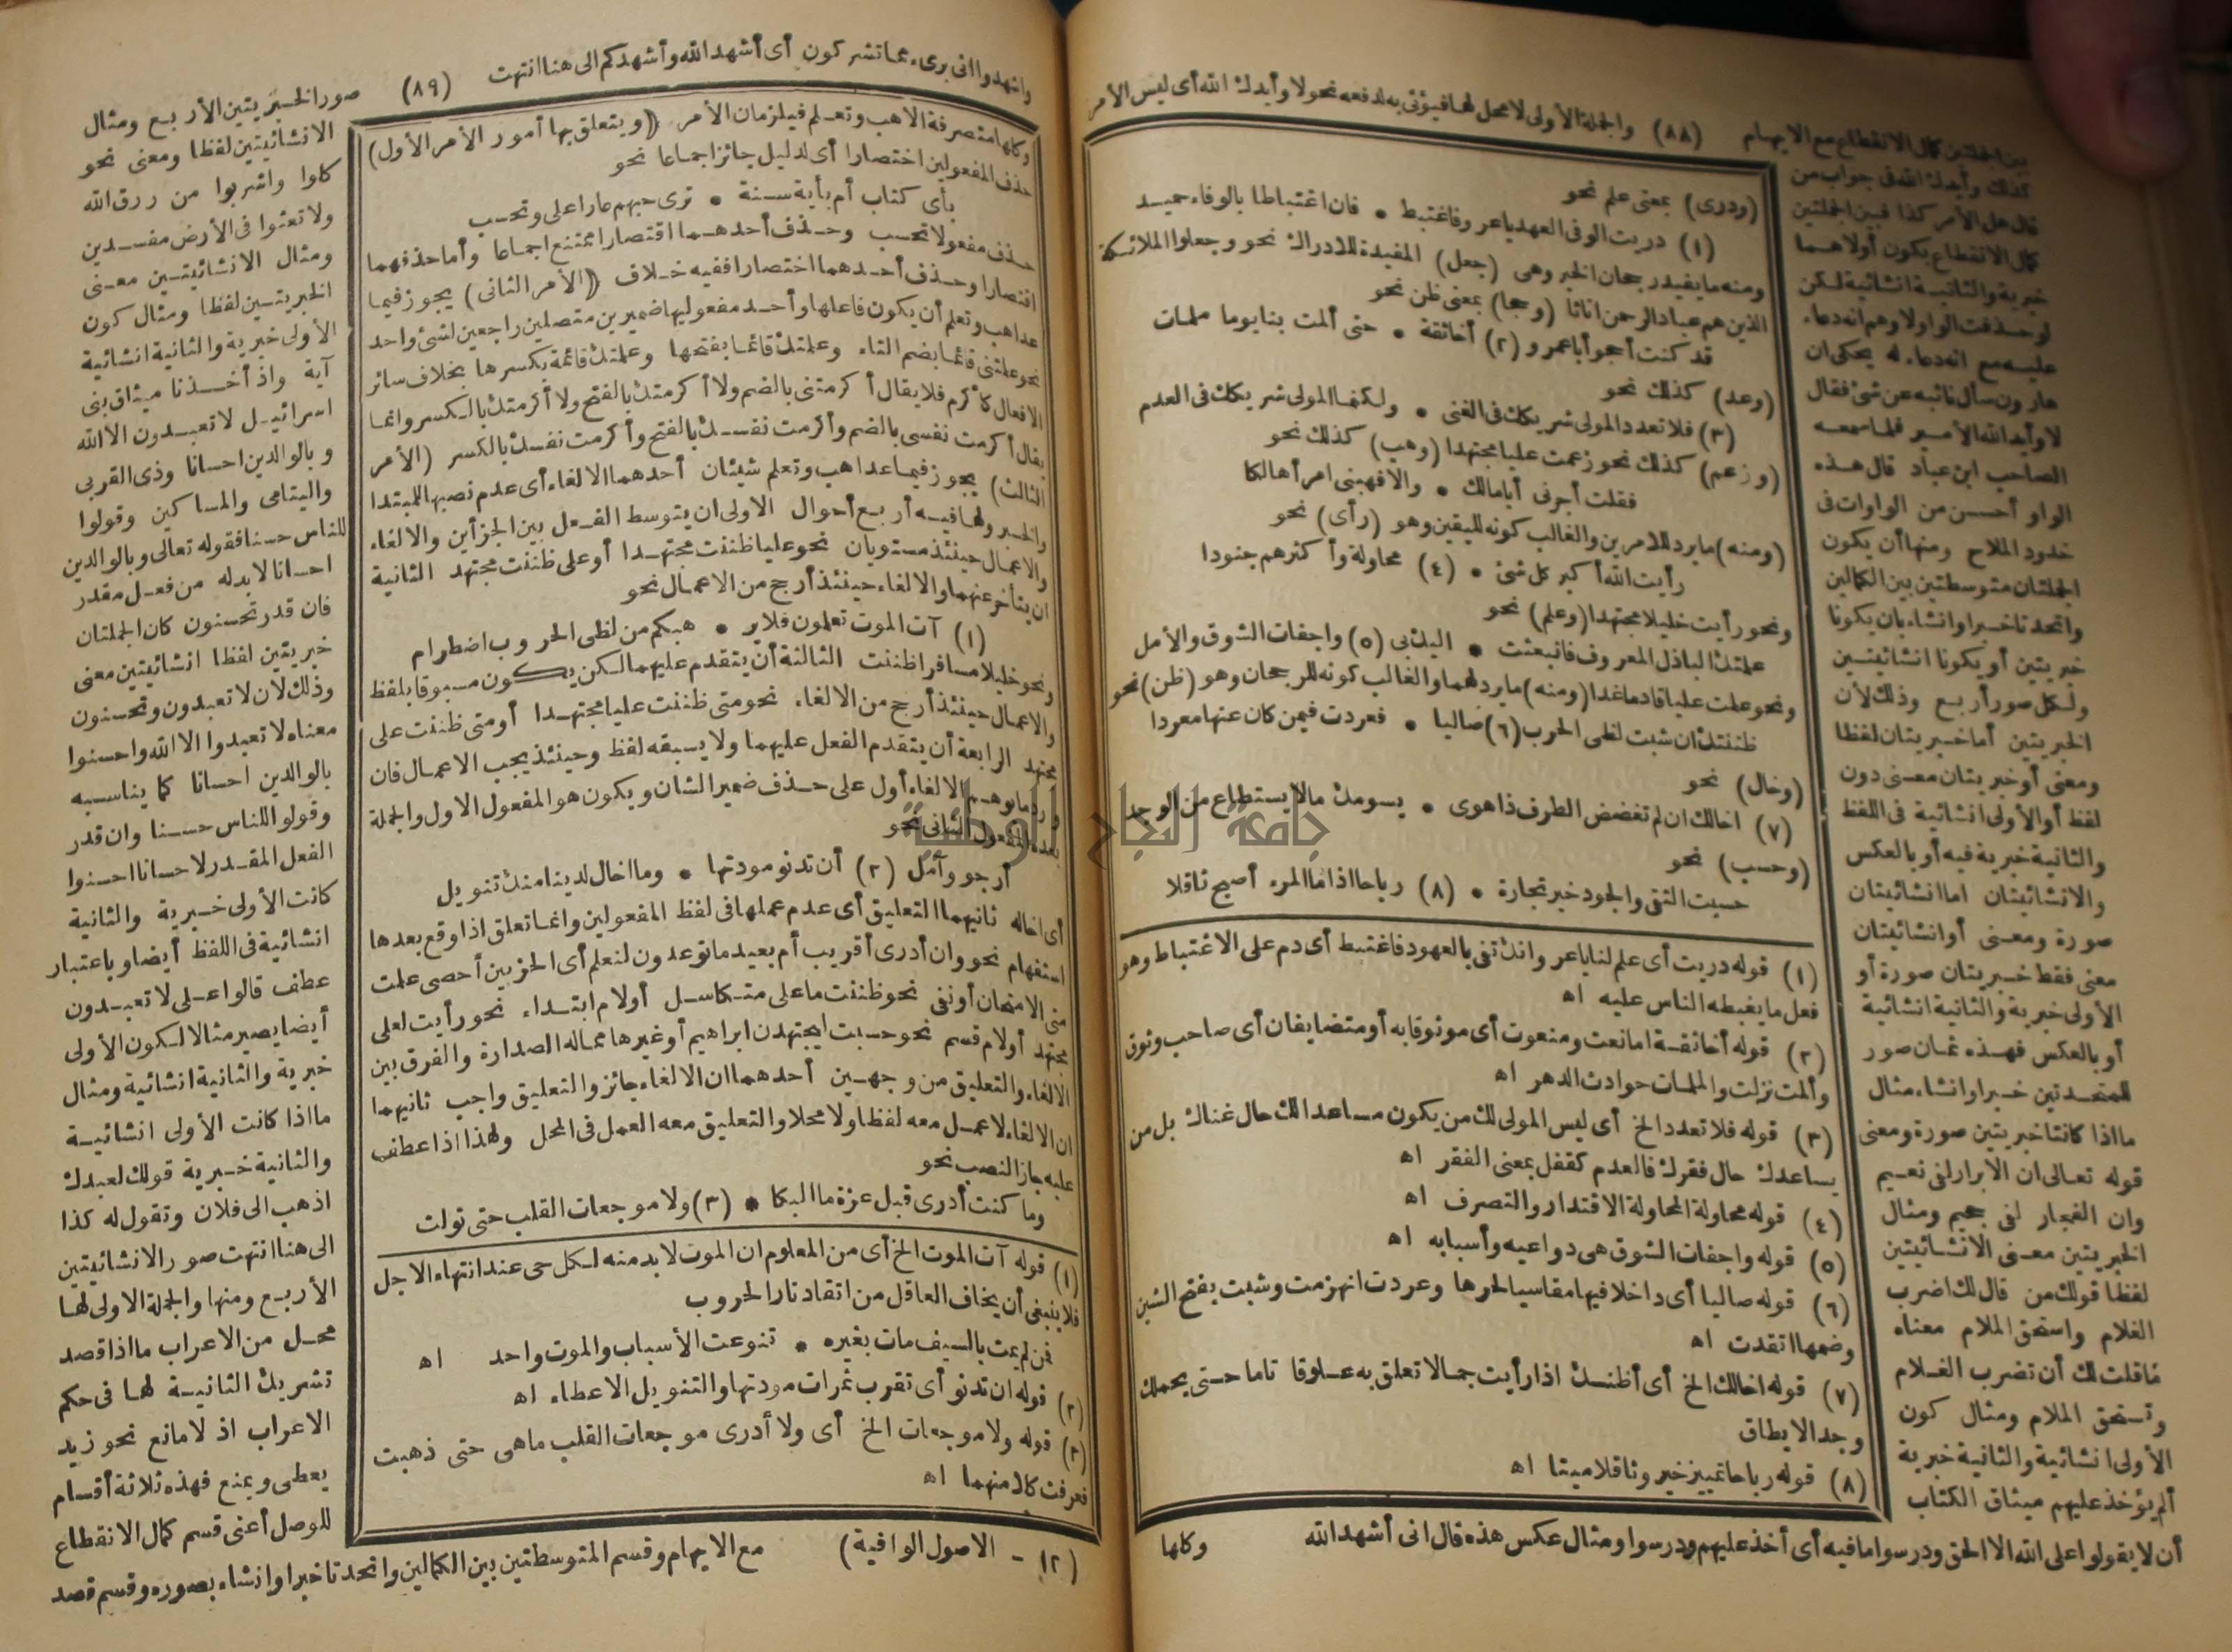 بين الجملتين كمال الانقطاع مع الايهام (٨٨) والجملة الأولى لا محل لها فيؤتى به لدفعه نحو لا وأيدك الله أى ليس الأمر
كذلك وأيدك الله فى جواب من
قال هل الأمر كذا فبين الجملتين
كمال الانقطاع بكون أولاهما
خبرية والثانية انشائية لكن
لو حذفت الواو لا وهم انه دعاء
عليه مع انه دعاء له يحكى ان
هارون سأل نائبه عن شئ فقال
لا وأيد الله الأمير فلما سمعه
الصاحب ابن عباد قال هذه
الواو أحسن من الواوات فى
خدود الملاح ومنها أن يكون
الجملتان متوسطتين بين الكمالين
واتحدتا خبرا وانشاء بان يكونا
خبريتين أو يكونا انشائيتين
ولكل صور أربع وذلك لأن
الخبريتين أما خبريتان لفظا
ومعنى أو خبريتان معنى دون
لفظ أو الأولى انشائية فى اللفظ
والثانية خبرية فيه أو بالعكس
والانشائيتان اما انشائيتان
صورة ومعنى أو انشائيتان
معنى فقط خبريتان صورة أو
الأولى خبرية والثانية انشائية
أو بالعكس فهذه ثمان صور
للمتحدتين خبرا وانشاء مثال
ما اذا كانتا خبريتين صورة ومعنى
قوله تعالى ان الأبرار لفى نعيم
وان الفجار لفى جحيم ومثال
الخبريتين معنى الانشائيتين
لفظا قولك من قال لك اضرب
الغلام واستحق الملام معناه
ما قلت لك أن تضرب الغلام
وتستحق الملام ومثال كون
الأولى انشائية والثانية خبرية
ألم يؤخذ عليهم ميثاق الكتاب
أن لا يقولوا على الله الا الحق ودرسوا ما فيه أى أخذ عليهم ودرسوا ومثال عكس هذه قال انى أشهد الله
(ودرى) بمعنى علم نحو
(١) دريت الوفى العهد يا عرو فاغتبط • فان اغتباطا بالوفاء حميد
ومنه ما يفيد رجحان الخبر وهى (جعل) المفيدة للادراك نحو وجعلوا الملائكة
الذين هم عباد الرحمن اناثا (وحجا) بمعنى ظن نحو
قد كنت أحجو أبا عمرو (٢) أخا ثقة • حتى ألمت بنا يوما ملمات
(وعد) كذلك نحو
(٣) فلا تعدد المولى شريكك فى الغنى • ولكنما المولى شريكك فى العدم
(وزعم) كذلك نحو زعمت عليا مجتهدا (وهب) كذلك نحو
فقلت أجرنى أبا مالك • والا فهبنى امرأ هالكا
(ومنه) ما يرد للامرين والغالب كونه لليقين وهو (رأى) نحو
رأيت الله أكبر كل شئ • (٤) محاولة وأكثرهم جنودا
ونحو رأيت خليلا مجتهدا (وعلم) نحو
علمتك الباذل المعروف فانبعثت • اليك بى (٥) واجفات الشوق والأمل
ونحو علمت عليا قادما غدا (ومنه) ما يرد لهما والغالب كونه للرجحان وهو (ظن) نحو
ظننتك ان شبت لظى الحرب (٦) صاليا • فعردت فيمن كان عنها معردا
(وخال) نحو
(٧) اخالك ان لم تغضض الطرف ذا هوى • يسومك ما لا يستطاع من الوجد
(وحسب) نحو
حسبت التقى والجود خير تجارة • (٨) رباحا اذا ما المرء أصبح ثاقلا
(١) قوله دريت أى علم لنا يا عر وانك تفى بالعهود فاغتبط أى دم على الاغتباط وهو
فعل ما يغبطه الناس عليه اه
(٢) قوله أخا ثقة اما نعت ومنعوت أى موثوقا به أو متضايفان أى صاحب وثوق
وألمت نزلت والملمات حوادث الدهر اه
(٣) قوله فلا تعدد الخ أى ليس المولى لك من يكون مساعدا لك حال غناك بل من
يساعدك حال فقرك فالعدم كقفل بمعنى الفقر اه
(٤) قوله محاولة المحاولة الاقتدار والتصرف اه
(٥) قوله واجفات الشوق هى دواعيه وأسبابه اه
(٦) قوله صاليا أى داخلا فيها مقاسيا لحرها وعردت انهزمت وشبت بفتح الشين
وضمها اتقدت اه
(٧) قوله اخالك الخ أى أظنك اذا رأيت جمالا تعلق به علوقا تاما حتى يحملك
وجدا لا يطاق
(٨) قوله رباحا تمييز خير وثاقلا ميتا اه
وكلها
واشهدوا انى برىء مما تشركون أى أشهد الله وأشهدكم الى هنا انتهت (٨٩) صور الخبريتين الأربع ومثال
وكلها متصرفة الا هب وتعلم فيلزمان الأمر ﴿ويتعلق بها أمور الأمر الأول﴾
حذف المفعولين اختصارا أى لدليل جائز اجماعا نحو
بأى كتاب أم بأية سنة • ترى حبهم عارا على وتحسب
حذف مفعولا تحسب وحذف أحدهما اقتصارا ممتنع اجماعا وأما حذفهما
اقتصارا وحذف أحدهما اختصارا ففيه خلاف ﴿الأمر الثانى﴾ يجوز فيما
عدا هب وتعلم أن يكون فاعلها وأحد مفعوليها ضميرين متصلين راجعين لشئ واحد
نحو علمتنى قائما بضم التاء وعلمتك قائما بفتحها وعلمتك قائمة بكسرها بخلاف سائر
الافعال كأكرم فلا يقال أكرمتنى بالضم ولا أكرمتك بالفتح ولا أكرمتك بالكسر وانما
يقال أكرمت نفسى بالضم وأكرمت نفسك بالفتح وأكرمت نفسك بالكسر (الأمر
الثالث) يجوز فيما عدا هب وتعلم شيئان أحدهما الالغاء أى عدم نصبها للمبتدا
والخبر ولها فيه أربع أحوال الاولى ان يتوسط الفعل بين الجزأين والالغاء
والاعمال حينئذ مستويان نحو عليا ظننت مجتهدا أو على ظننت مجتهد الثانية
ان يتأخر عنهما والالغاء حينئذ أرجح من الاعمال نحو
(١) آت الموت تعلمون فلا ير • هبكم من لظى الحروب اضطرام
ونحو خليلا مسافرا ظننت الثالثة أن يتقدم عليهما لكن يكون مسبوقا بلفظ
والاعمال حينئذ أرجح من الالغاء نحو متى ظننت عليا مجتهدا أو متى ظننت على
مجتهد الرابعة أن يتقدم الفعل عليهما ولا يسبقه لفظ وحينئذ يجب الاعمال فان
ورد ما يوهم الالغاء أول على حذف ضمير الشان ويكون هو المفعول الاول والجملة
بعده المفعول الثانى نحو
أرجو وآمل (٢) أن تدنو مودتها • وما اخال لدينا منك تنويل
أى اخاله ثانيهما التعليق أى عدم عملها فى لفظ المفعولين وانما تعلق اذا وقع بعدها
استفهام نحو وان أدرى أقريب أم بعيد ما توعدون لنعلم أى الحزبين أحصى علمت
متى الامتحان أو نفى نحو ظننت ما على متكاسل أو لام ابتداء نحو رأيت لعلى
مجتهد أو لام قسم نحو حسبت ليجتهدن ابراهيم أو غيرها مما له الصدارة والفرق بين
الالغاء والتعليق من وجهين أحدهما ان الالغاء جائز والتعليق واجب ثانيهما
ان الالغاء لا عمل معه لفظا ولا محلا والتعليق معه العمل فى المحل ولهذا اذا عطف
عليه جاز النصب نحو
وما كنت أدرى قبل عزة ما البكا • (٣) ولا موجعات القلب حتى تولت
(١) قوله آت الموت الخ أى من المعلوم ان الموت لا بد منه لكل حى عند انتهاء الاجل
فلا ينبغى أن يخاف العاقل من اتقاد نار الحروب
فمن لم يمت بالسيف مات بغيره • تنوعت الأسباب والموت واحد اه
(٢) قوله ان تدنو أى تقرب ثمرات مودتها والتنويل الاعطاء اه
(٣) قوله ولا موجعات الخ أى ولا أدرى موجعات القلب ما هى حتى ذهبت
فعرفت كلا منهما اه
الانشائيتين لفظا ومعنى نحو
كلوا واشربوا من رزق الله
ولا تعثوا فى الأرض مفسدين
ومثال الانشائيتين معنى
الخبريتين لفظا ومثال كون
الأولى خبرية والثانية انشائية
آية واذ أخذنا ميثاق بنى
اسرائيل لا تعبدون الا الله
وبالوالدين احسانا وذى القربى
واليتامى والمساكين وقولوا
للناس حسنا فقوله تعالى وبالوالدين
احسانا لا بد له من فعل مقدر
فان قدر تحسنون كان الجملتان
خبريتين لفظا انشائيتين معنى
وذلك لان لا تعبدون وتحسنون
معناه لا تعبدوا الا الله واحسنوا
بالوالدين احسانا كما يناسبه
وقولوا للناس حسنا وان قدر
الفعل المقدر لا حسانا احسنوا
كانت الأولى خبرية والثانية
انشائية فى اللفظ أيضا وباعتبار
عطف قالوا على لا تعبدون
أيضا يصير مثالا لكون الأولى
خبرية والثانية انشائية ومثال
ما اذا كانت الأولى انشائية
والثانية خبرية قولك لعبدك
اذهب الى فلان وتقول له كذا
الى هنا انتهت صور الانشائيتين
الأربع ومنها والجملة الاولى لها
محل من الاعراب ما اذا قصد
تشريك الثانية لها فى حكم
الاعراب اذ لا مانع نحو زيد
يعطى ويمنع فهذه ثلاثة أقسام
للوصل أعنى قسم كمال الانقطاع
(١٢ - الاصول الوافية) مع الايهام وقسم المتوسطتين بين الكمالين واتحدتا خبرا وانشاء بصوره وقسم قصد
جامعة النجاح الوطنية